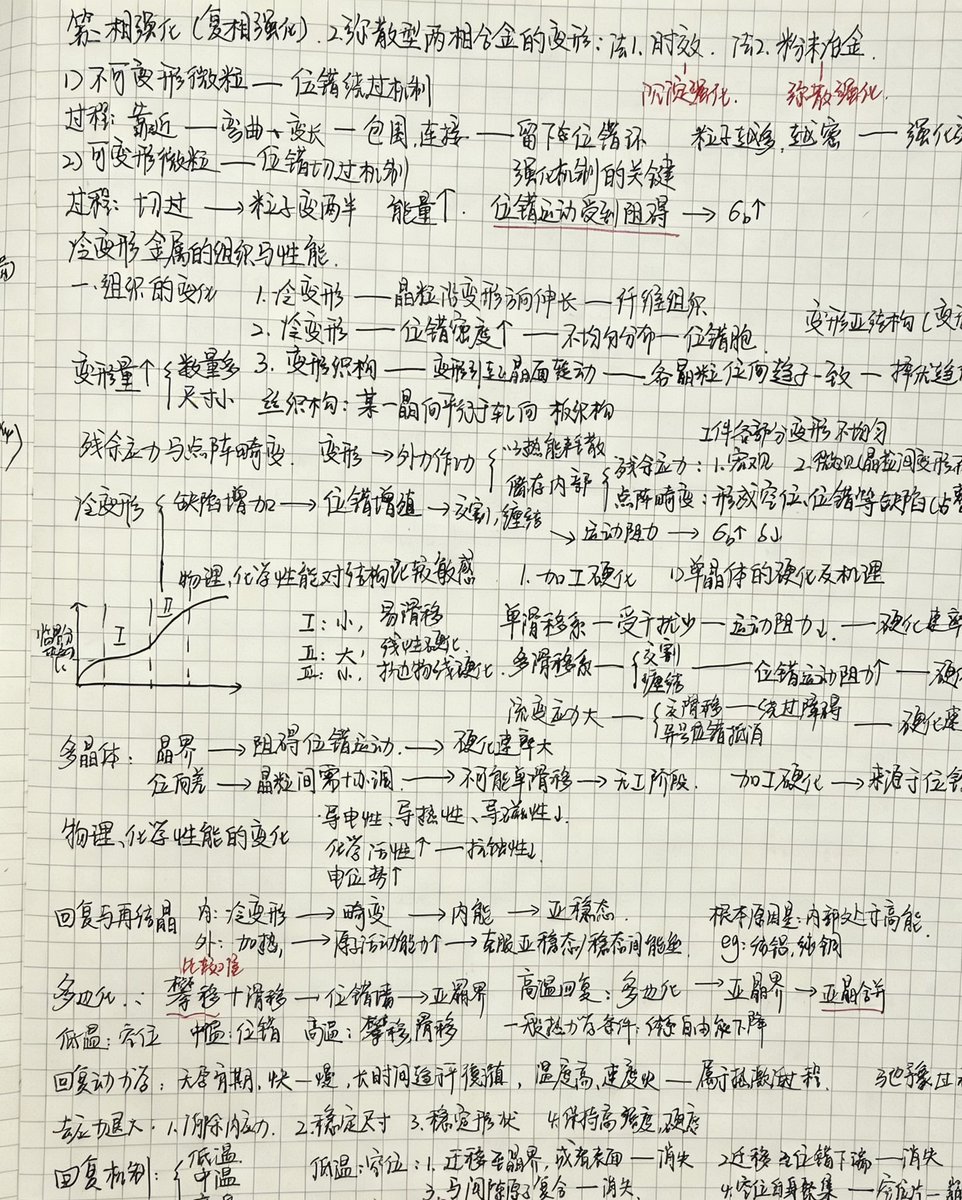 第二相强化(复相强化). 2.弥散型两相合金的变形: 法1.时效. 法2.粉末冶金.
沉淀强化. 弥散强化.
1)不可变形微粒——位错绕过机制
过程: 靠近——弯曲、变长—包围,连接——留下位错环 粒子越多,越密——强化
2)可变形微粒——位错切过机制 强化机制的关键
过程: 切过→粒子变两半 能量↑. 位错运动受到阻碍→σb↑
冷变形金属的组织与性能.
一.组织的变化 1.冷变形——晶粒沿变形方向伸长—纤维组织
2.冷变形——位错密度↑—不均匀分布—位错胞. 变形亚结构(变形
变形量↑ 数量多 3.变形织构——变形引起晶面转动——各晶粒位向趋于一致—择优
尺寸小 丝织构: 某一晶向平行于轧向 板织构
工件各部分变形不均匀
残余应力与点阵畸变. 变形→外力作功 以热能释散
储存内部 残余应力: 1.宏观 2.微观(晶粒间变形不
点阵畸变: 形成空位、位错等缺陷(占
冷变形 缺陷增加→位错增殖→交割,缠结
→运动阻力→σb↑ δ↓
物理、化学性能对结构比较敏感 1.加工硬化 1)单晶体的硬化及机理
临界分切应力τc
Ⅰ Ⅱ
Ⅰ: 小, 易滑移 单滑移系—受干扰少—运动阻力↓.—硬化速率
Ⅱ: 大, 线性硬化
Ⅲ: 小, 抛物线硬化. 多滑移系— 交割 缠结 ——位错运动阻力↑—硬
流变应力大— 交滑移—绕过障碍 异号位错抵消 —硬化速
多晶体: 晶界→阻碍位错运动.→硬化速率大
位向差→晶粒间需协调→不可能单滑移→无Ⅰ阶段. 加工硬化→来源于位错
物理、化学性能的变化 ·导电性、导热性、导磁性↓.
化学活性↑—抗蚀性↓.
电位势↑
回复与再结晶 内: 冷变形→畸变→内能→亚稳态. 根本原因是: 内部处于高能.
外: 加热,→原子活动能力↑→克服亚稳态/稳态间能垒 eg: 纯铝,纯铜
比较难
多边化∴: 攀移+滑移→位错墙→亚晶界 高温回复: 多边化→亚晶界→亚晶合并
低温: 空位 中温: 位错 高温: 攀移,滑移 一般热力学条件: 体系自由能下降
回复动力学: 无孕育期,快—慢,长时间趋于平衡值, 温度高,速度快—属于热激活过程.
去应力退火: 1.消除内应力. 2.稳定尺寸 3.稳定形状 4.保持高强度,硬度
回复机制: 低温. 低温: 空位: 1.迁移至晶界,或者表面—消失 2.迁移至位错下端—消失
中温 3.与间隙原子复合—消失. 4.空位自身聚集—空位片—